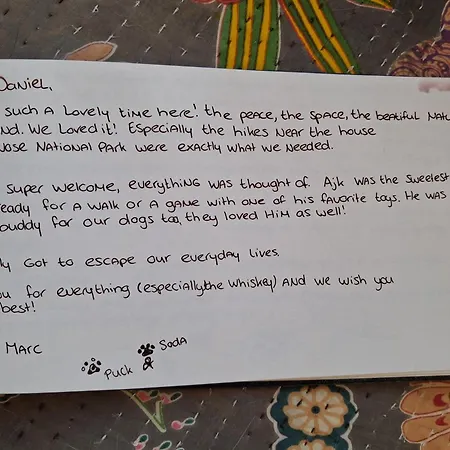 Daniel,
such a lovely time here! the peace, the space, the beatiful natu
nd. We loved it! Especially the hikes near the house
National Park were exactly what we needed.
super welcome, everything was thought of. Ajk was the sweetest
ready for a walk or a game with one of his favorite toys. He was
buddy for our dogs too, they loved him as well!
ly got to escape our everyday lives.
ou for everything (especially the whiskey) and we wish you
best!
Marc
Soda
&
Puck